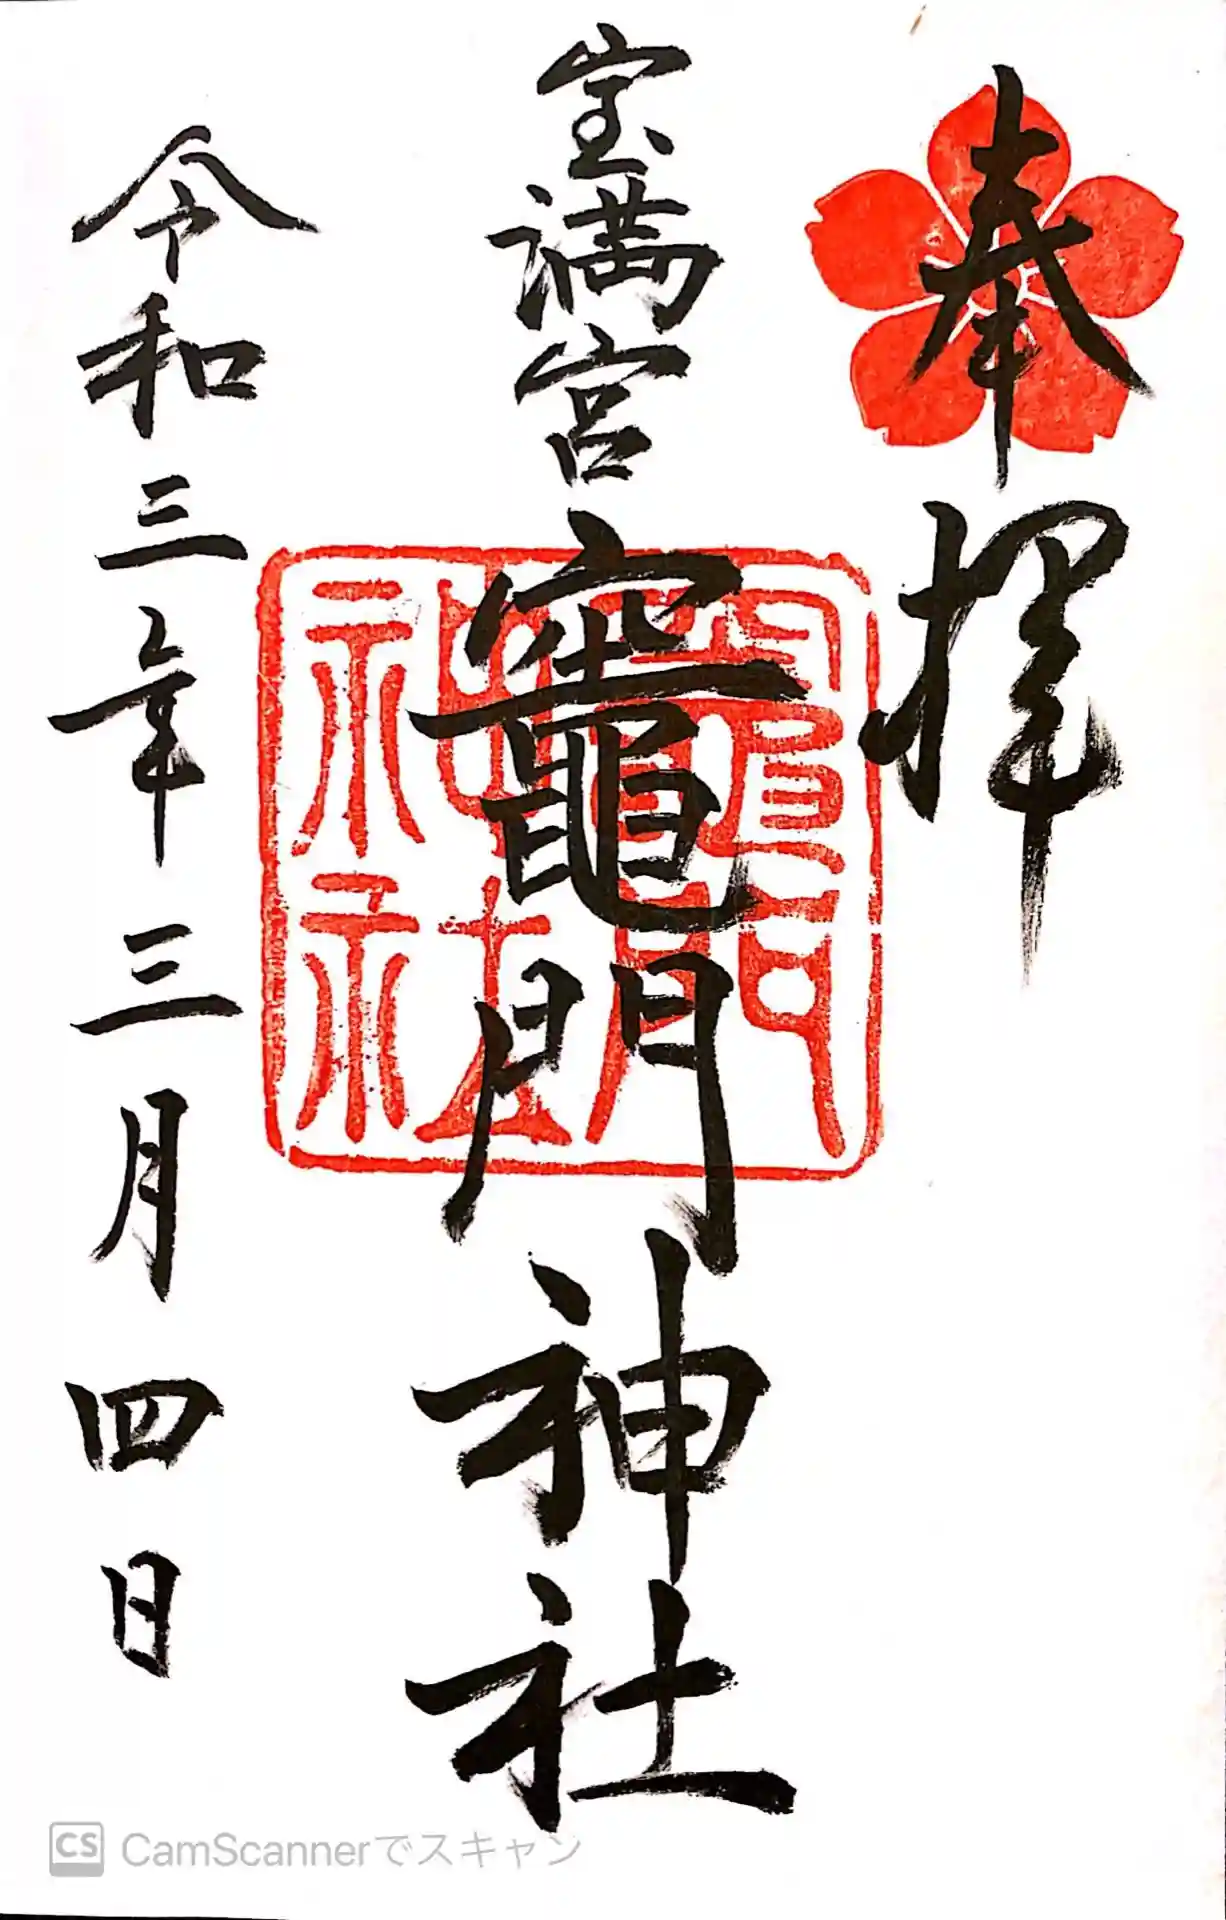 奉拝
宝満宮竈門神社
竈門神社
令和三年三月四日
CS CamScannerでスキャン